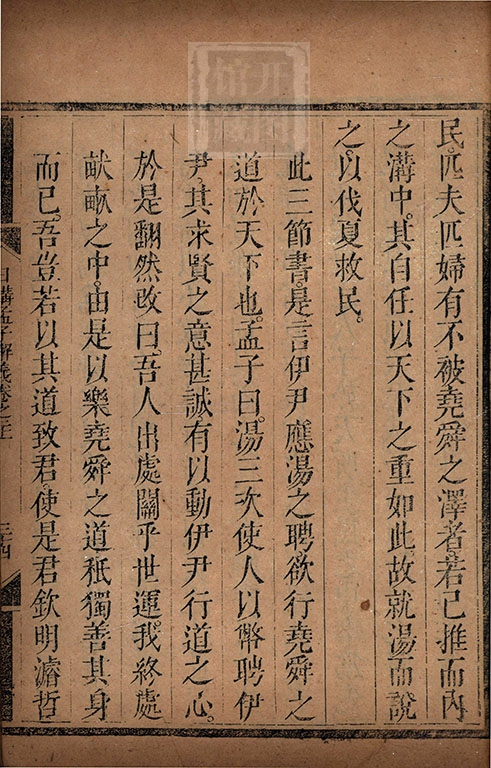 民。匹夫匹婦有不被堯舜之澤者。若己推而內
之溝中。其自任以天下之重如此。故就湯而說
之。以伐夏救民。
此三節書。是言伊尹應湯之聘。欲行堯舜之
道於天下也。孟子曰。湯三次使人以幣聘伊
尹。其求賢之意甚誠。有以動伊尹行道之心。
於是翻然改曰。吾人出處關乎世運。我終處
畎畝之中。由是以樂堯舜之道。祇獨善其身
而已。吾豈若以其道致君。使是君欽明濬哲
日講孟子解義卷之三上 三十四